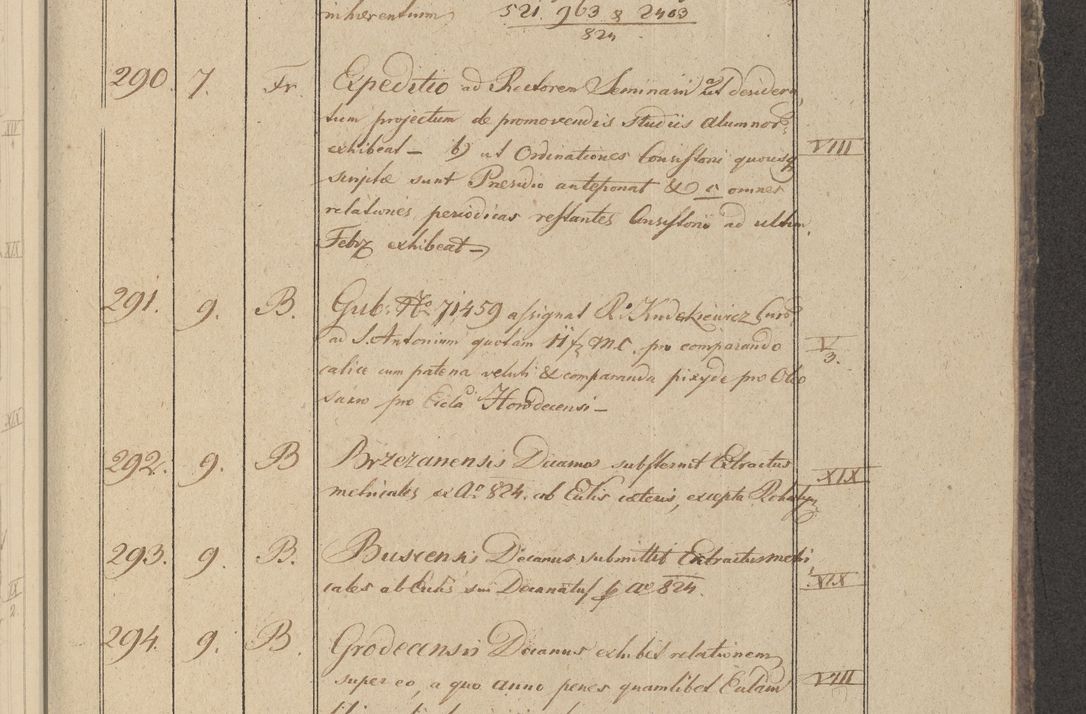 inhærentium 521. 963 & 2403
824
290. 7. Fr. Expeditio ad Rectorem Seminarii a) ut desidera
tum projectum de promovendis studiis alumnor:
exhibeat – b) ut Ordinationes Consistorii quousq VIII
scriptæ sunt Præsidio anteponat & c) omnes
relationes periodicas restantes Consistorio ad ultim.
Febr exhibeat –
291. 9. B. Gub: No 71459 assignat R.
ad S. Antonium quotam M.C. pro comparando V
3.
calice cum patena veluti & comparanda pixyde pro Oleo
sacro pro Eccla Horodecensi –
292. 9. B Brzezanensis Decanus substernit Extractus XIX
metricales ex Ao 824. ab Eccliis ceteris, excepta
293. 9. B. Buscensis Decanus submittit Extractus metri
cales ab Ecclis sui Decanatus p Ao 824. XIX
294. 9. B. Grodecensis Decanus exhibet relationem
super eo, a quo anno penes quamlibet Eccliam VIII
XII
XIX
XIX
IX
2